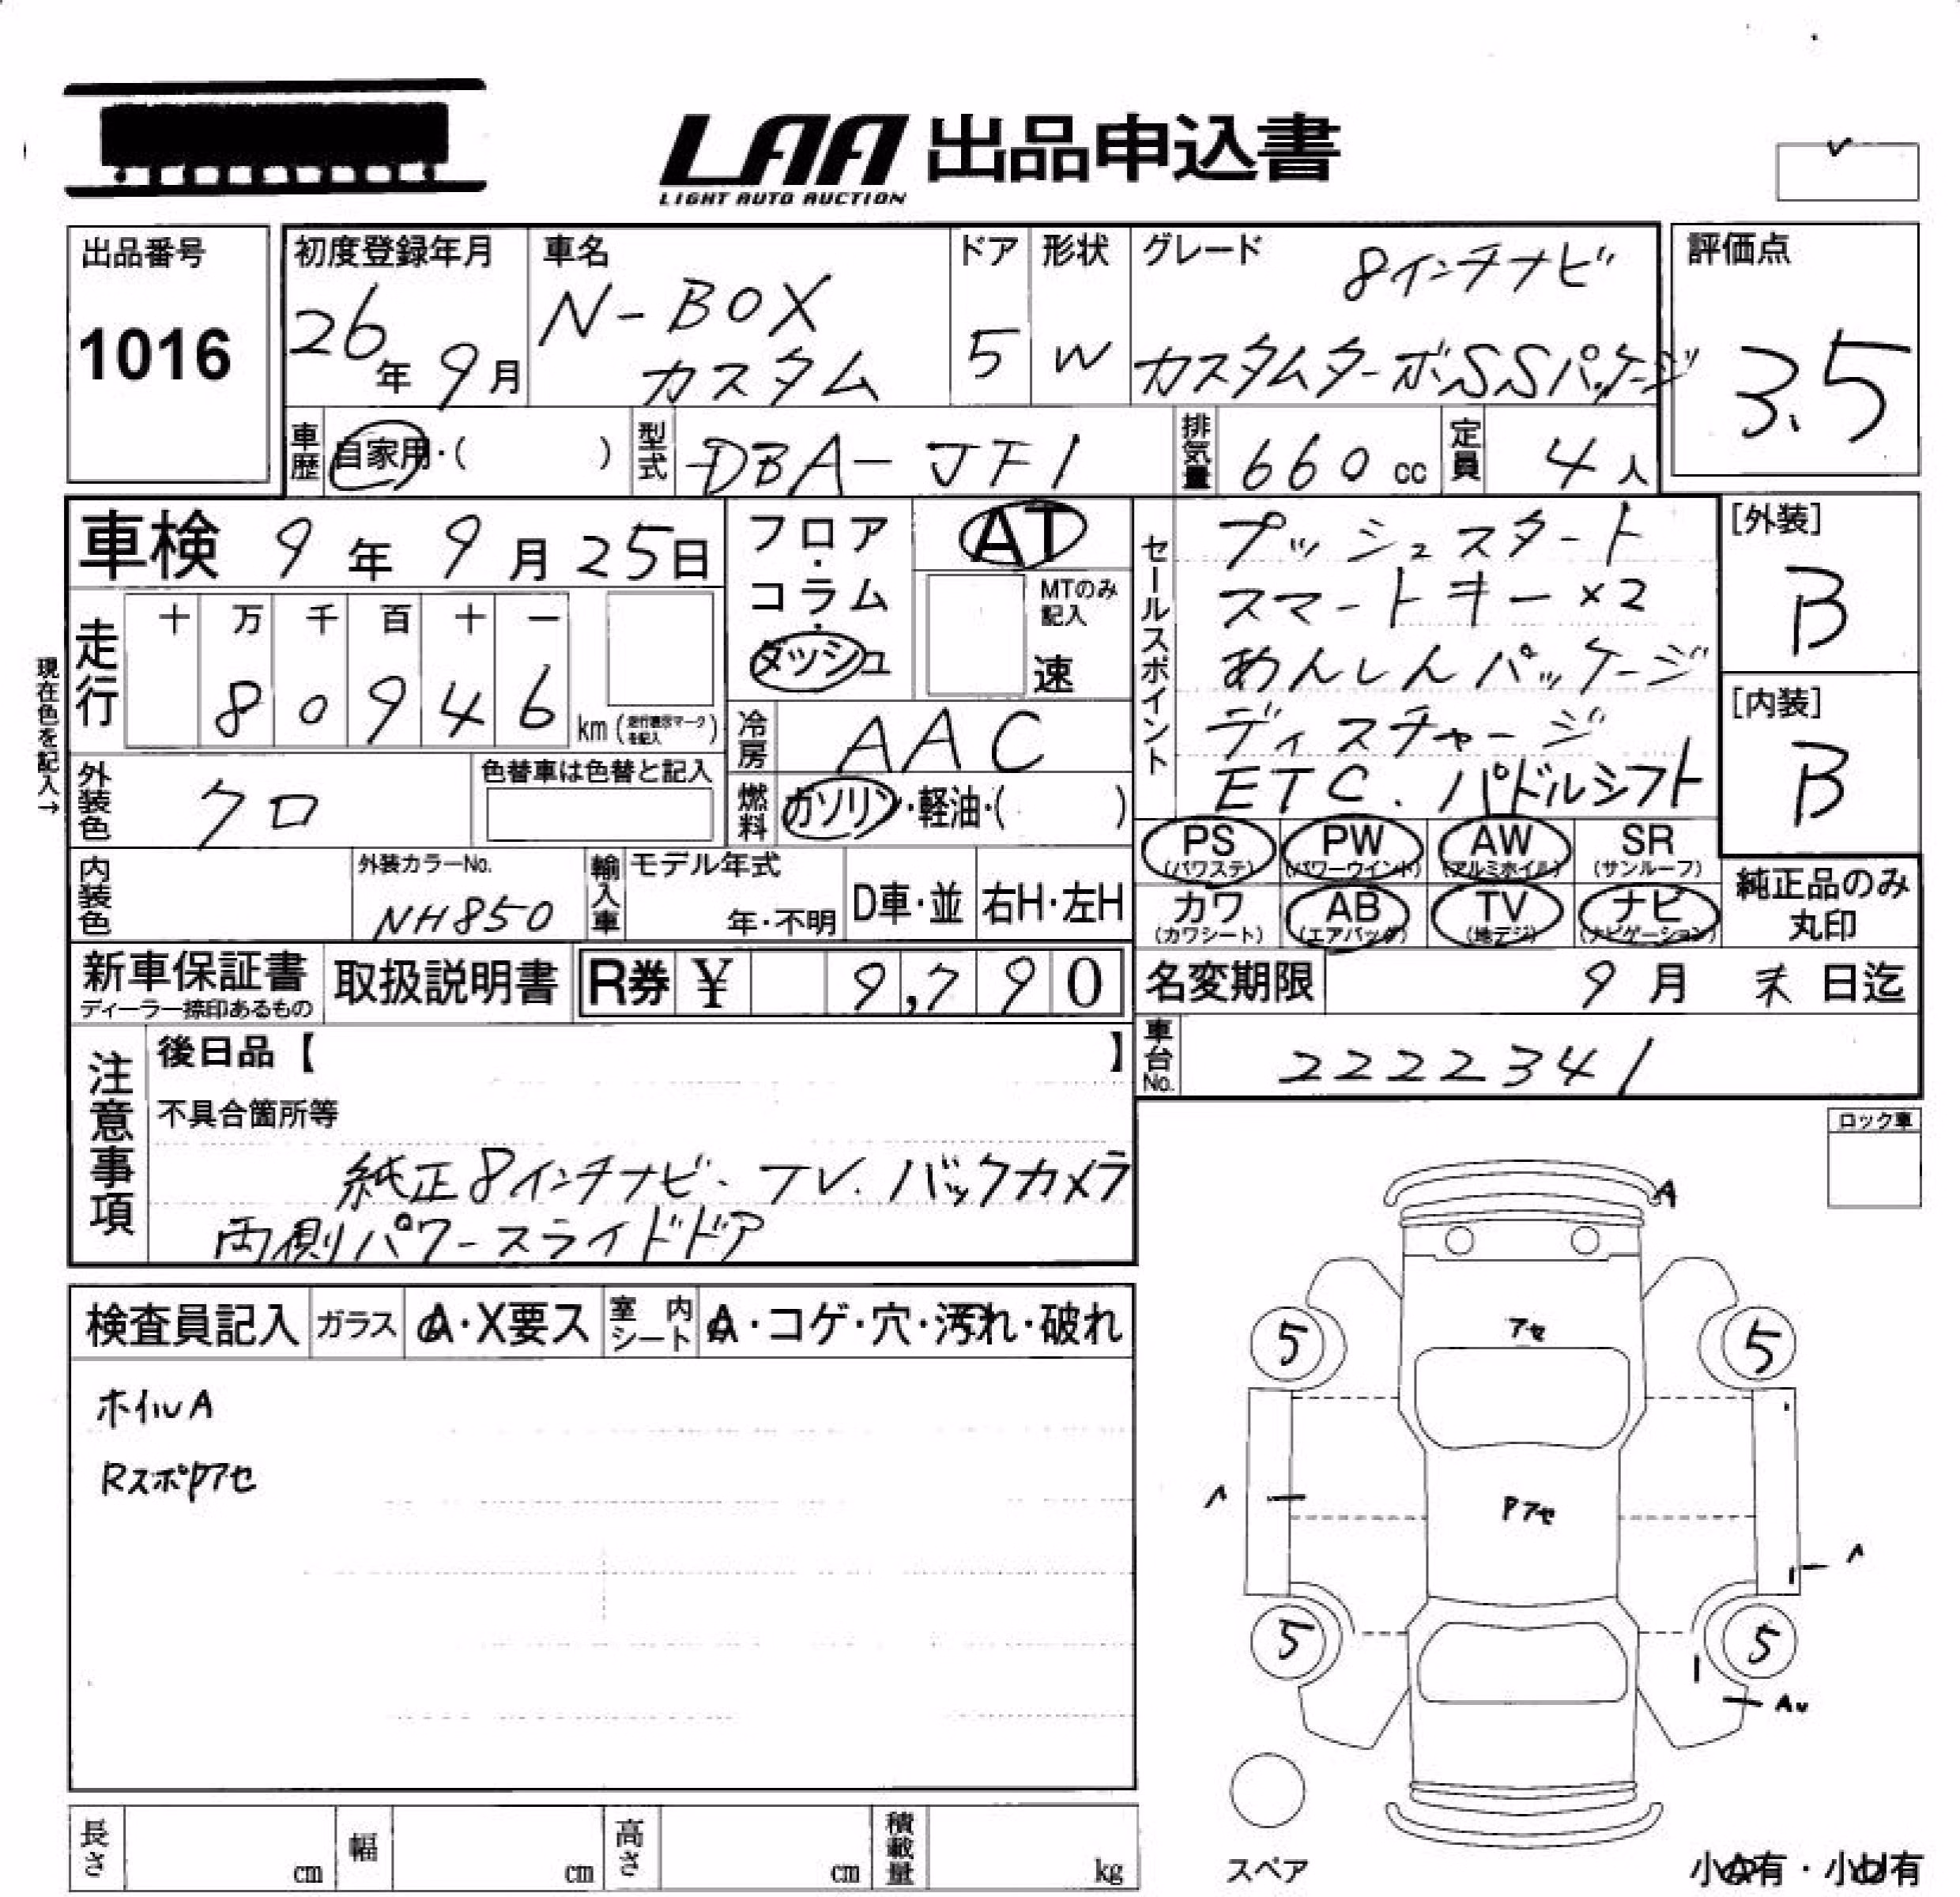 LAA 出品申込書
LIGHT AUTO AUCTION
出品番号
1016
初度登録年月
26年 9月
車名
N-BOX
カスタム
ドア
5
形状
W
グレード
8インチナビ
カスタムターボSSパッケージ
評価点
3.5
車歴 自家用・( )
型式 DBA-JF1
排気量 660 cc
定員 4人
車検 9年 9月 25日
フロア・
コラム・
ダッシュ
AT
MTのみ
記入
速
走行
十 万 千 百 十 一
8 0 9 4 6
km (走行表示マークを記入)
現在色を記入→
冷房 AAC
外装色 クロ
色替車は色替と記入
燃料 ガソリン・軽油・( )
内装色
外装カラーNo.
NH850
輸入車
モデル年式
年・不明
D車・並
右H・左H
セールスポイント
プッシュスタート
スマートキー×2
あんしんパッケージ
ディスチャージ
ETC、パドルシフト
[外装]
B
[内装]
B
PS
(パワステ)
PW
(パワーウインド)
AW
(アルミホイル)
SR
(サンルーフ)
カワ
(カワシート)
AB
(エアバッグ)
TV
(地デジ)
ナビ
(ナビゲーション)
純正品のみ
丸印
新車保証書
ディーラー捺印あるもの
取扱説明書
R券 ¥ 9,790
名変期限 9月 末日迄
車台No. 2222341
注意事項
後日品【 】
不具合箇所等
純正8インチナビ、TV、バックカメラ
両側パワースライドドア
ロック車
検査員記入
ガラス A・X要ス
室内シート A・コゲ・穴・汚れ・破れ
ホイルA
RスポPアセ
A
アセ
5 5
Pアセ
5 5
スペア
小A有・小U有
長さ cm
幅 cm
高さ cm
積載量 kg